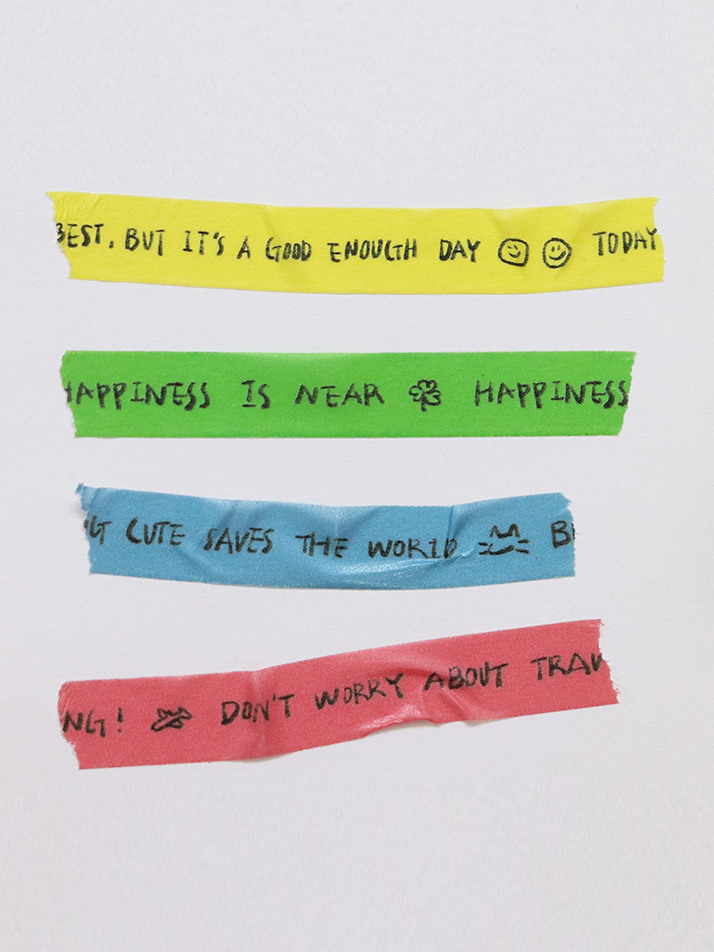 BEST, BUT IT'S A GOOD ENOUGH DAY TODAY
HAPPINESS IS NEAR HAPPINESS
NG CUTE SAVES THE WORLD B
NG! DON'T WORRY ABOUT TRAV